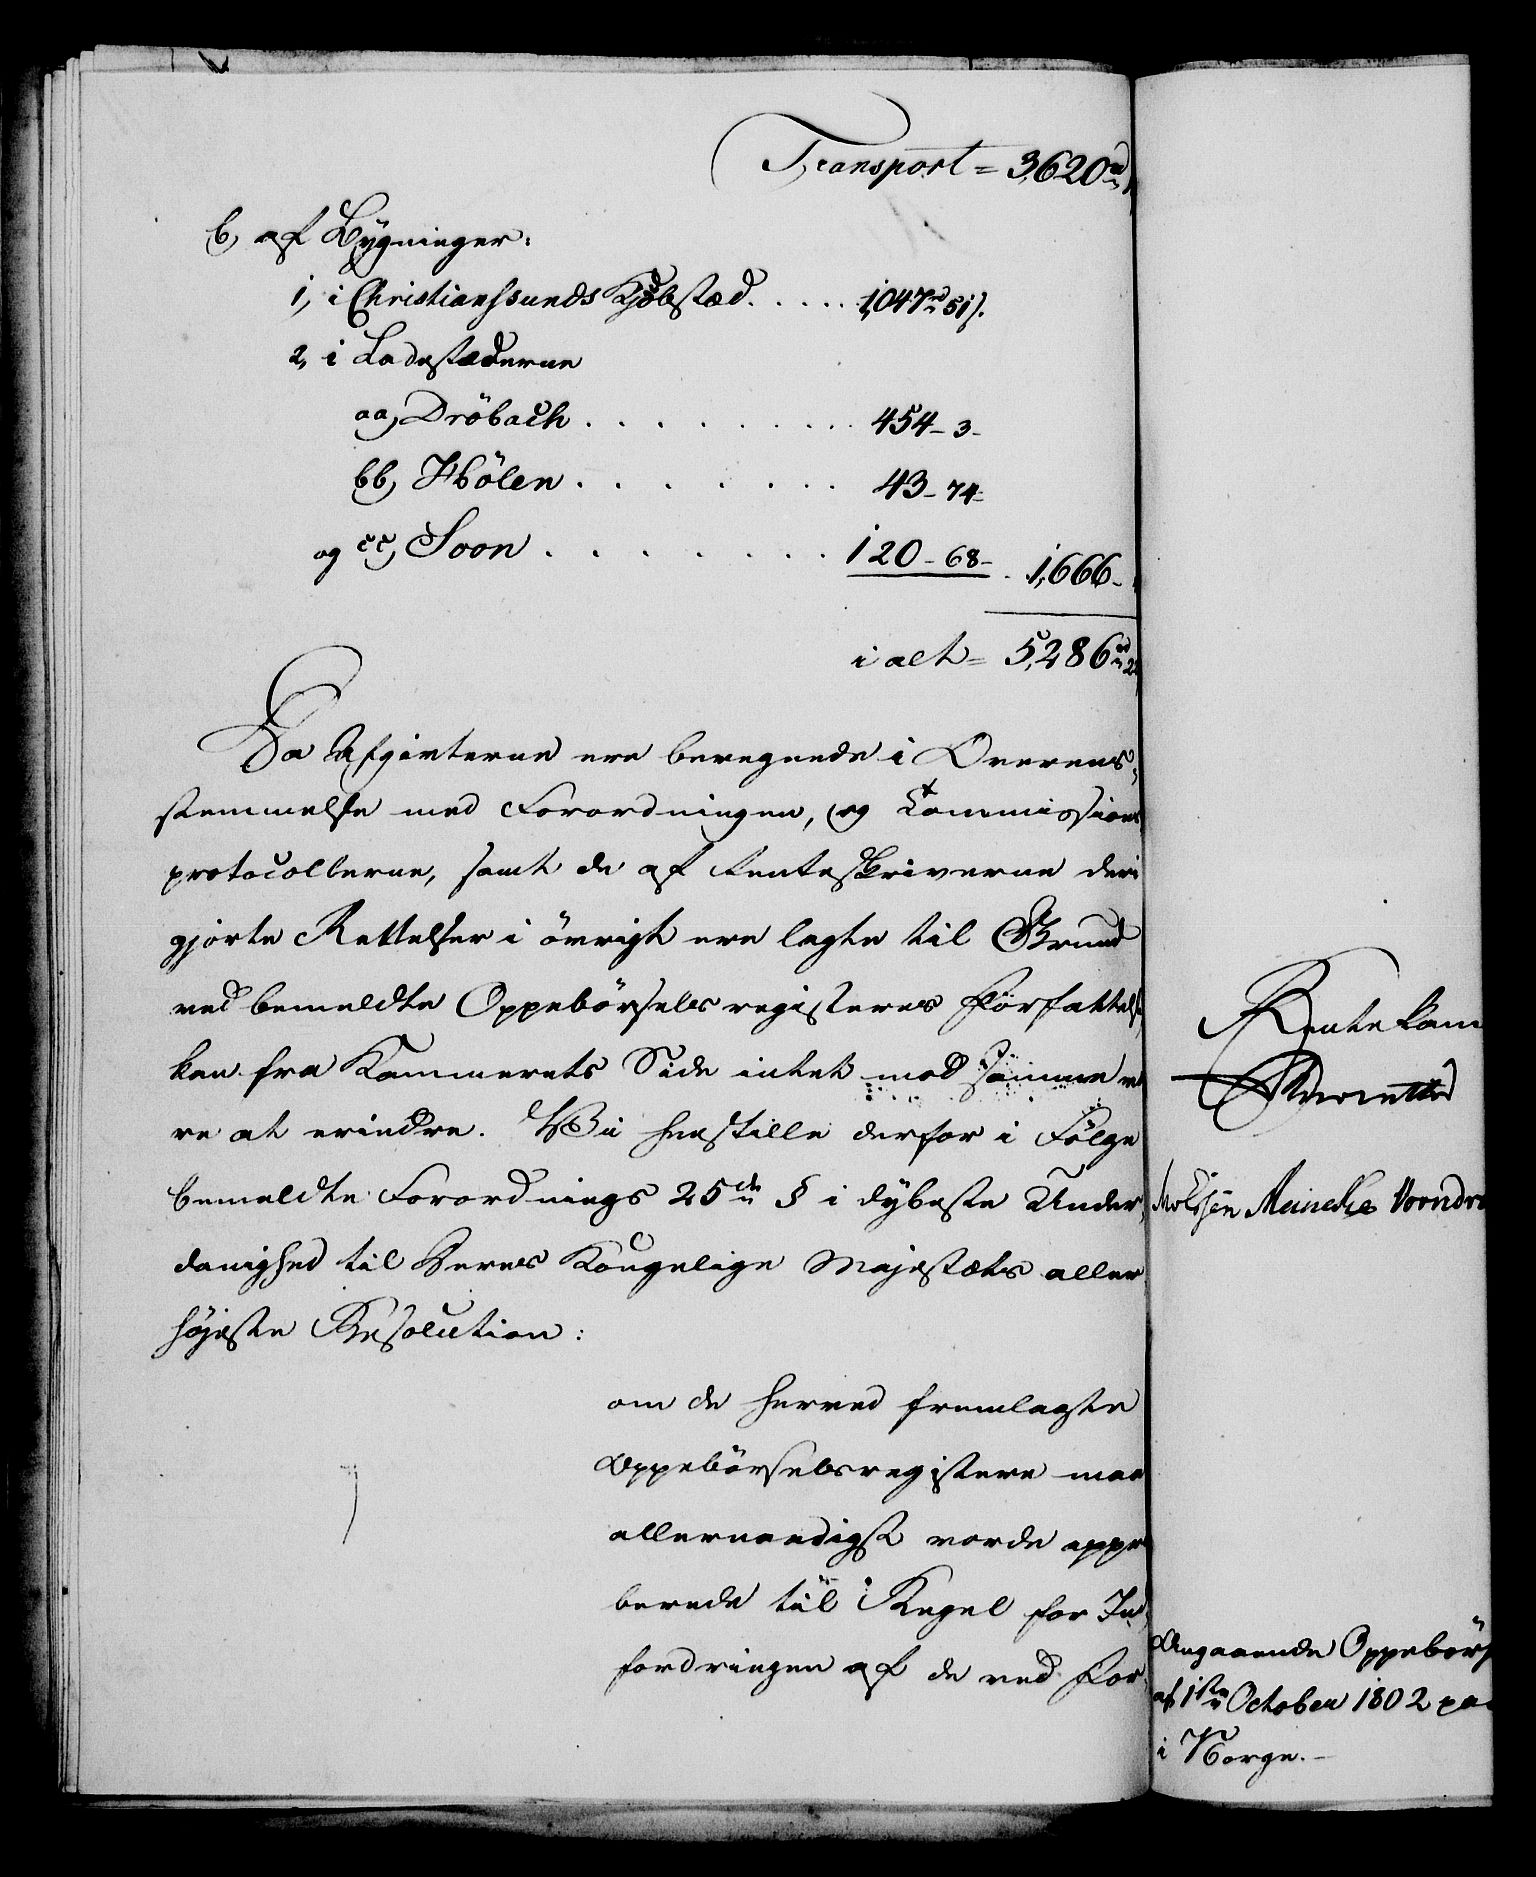 Transport = 3,620 rd
b, af Bygninger:
1, i Christianssunds Kjøbstæd. . . . . 1,047 rd 51 s.
2, i Ladestæderne
aa, Dröbach . . . . . . . . . 454 - 3 -
bb, Hölen . . . . . . . . 43 - 74 -
og cc, Soon . . . . . . . . 120 - 68 - . 1,666 -
i alt = 5,286 rd 2
Da Afgivterne ere beregnede i Overens-
stemmelse med Forordningen, og Commissions
protocollerne, samt de af Renteskriverne deri
gjorte Rettelser i övrigt ere lagte til Grund
ved bemeldte Oppebörselsregisteres Forfattelse,
kan fra Kammerets Side intet mod samme væ
re at erindre. Vi henstille derfor i Fölge
bemeldte Forordnings 25de § i dybeste Under,
danighed til Deres Kongelige Majestæts aller
höjeste Resolution:
om de herved fremlagte
Oppebörselsregistere maae
allernaadigst vorde appro
berede til Regel for Ind,
fordringen af de ved For
Rentekam
Meinche Vorndr
Angaaende Oppebörs
af 1ste October 1802 paa
i Norge. -